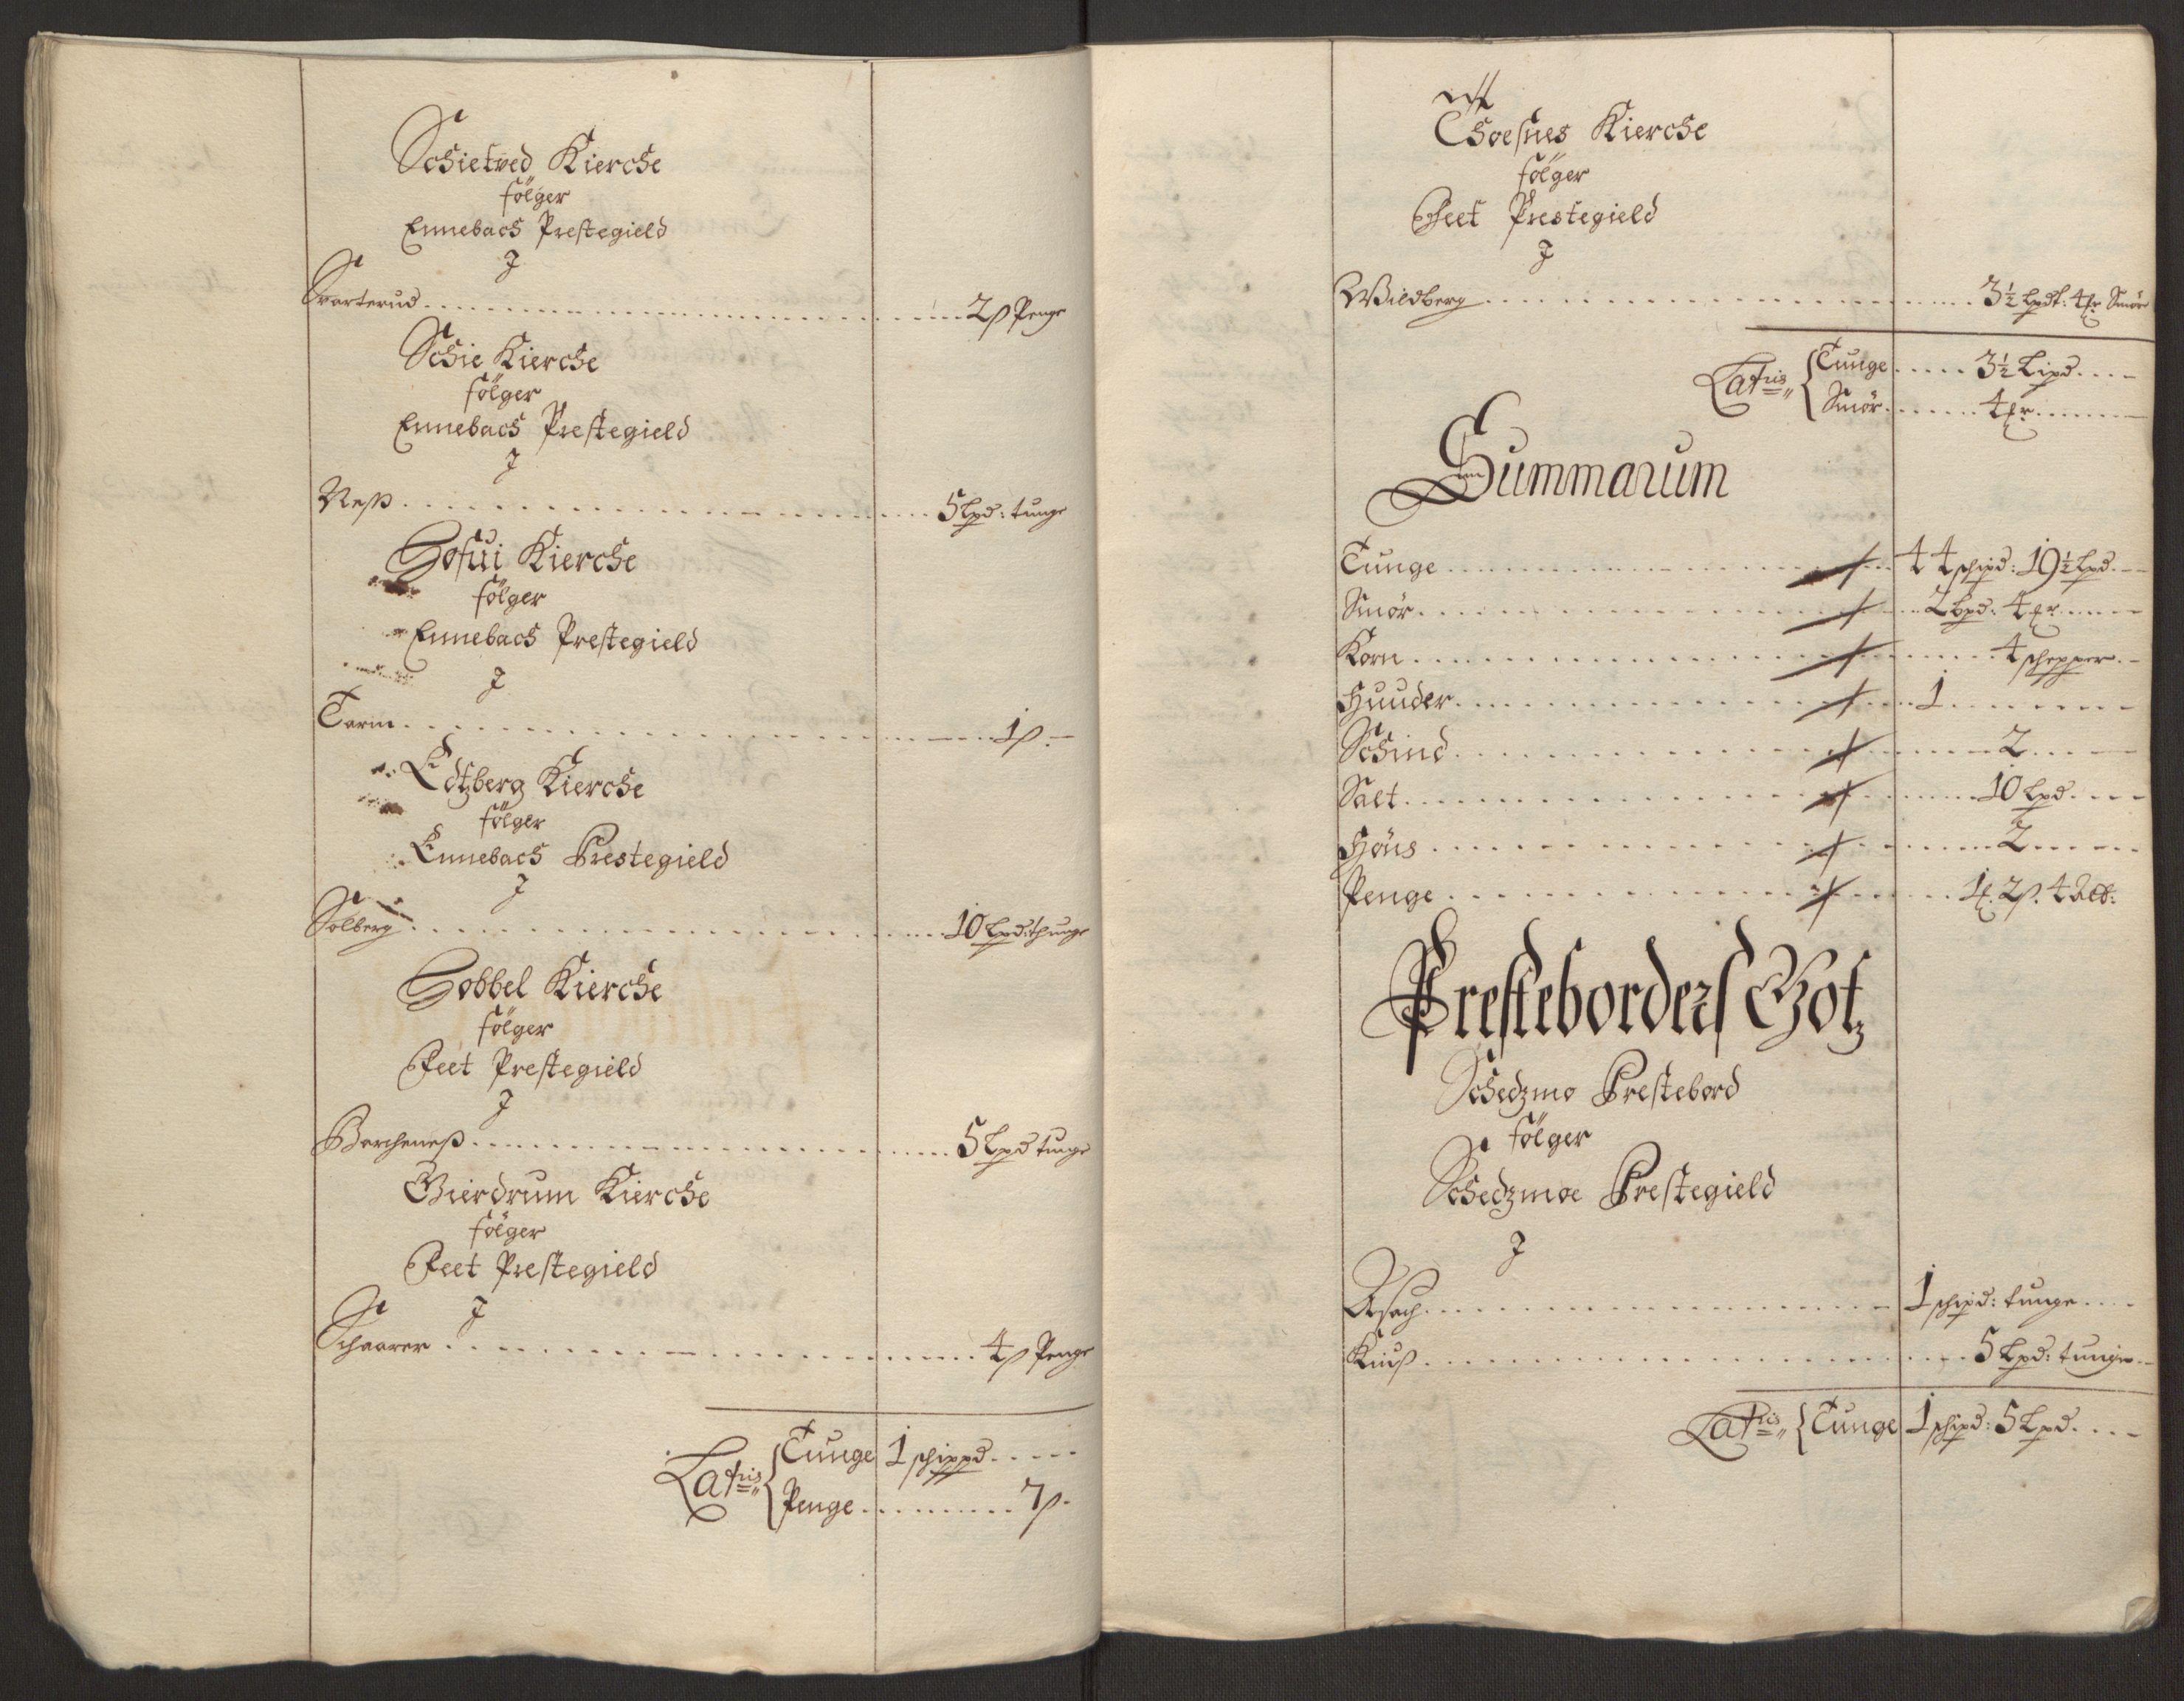 Schietved Kierche
fölger
Ennebach Prestegield
J
Svarterud 2 ß Penge
Schie Kierche
fölger
Ennebach Prestegield
J
Neß 5 Lpd: tunge
Hofui Kierche
fölger
Ennebach Prestegield
J
Tarm 1 ß
Edtzberg Kierche
fölger
Ennebach Prestegield
J
Solberg 10 Lpd: thunge
Hobbel Kierche
fölger
Feet Prestegield
J
Borcheneß 5 Lpd tunge
Gierdrum Kierche
fölger
Feet Prestegield
J
Schaarer 4 ß Penge
Latris Tunge 1 schippd
Penge 7 ß
Choesnes Kierche
fölger
Feet Prestegield
J
Wildberg 3½ Lpdt: 4 Smör
Latris Tunge 3½ Lipd
Smör 4
Summarum
Tunge 44 schipd: 19½ Lpd
Smör 2 Bpd: 4
Korn 4 schepper
Huuder 1
Schind 2
Salt 10 Lpd
Höns 2
Penge 1 2 ß 4 Alb:
Presteborders Gotz
Schedzmo Prestebord
fölger
Schedzmoe Prestegield
J
Asach 1 schipd: tunge
Kiuß 5 Lpd: tunge
Latris Tunge 1 schipd: 5 Lpd